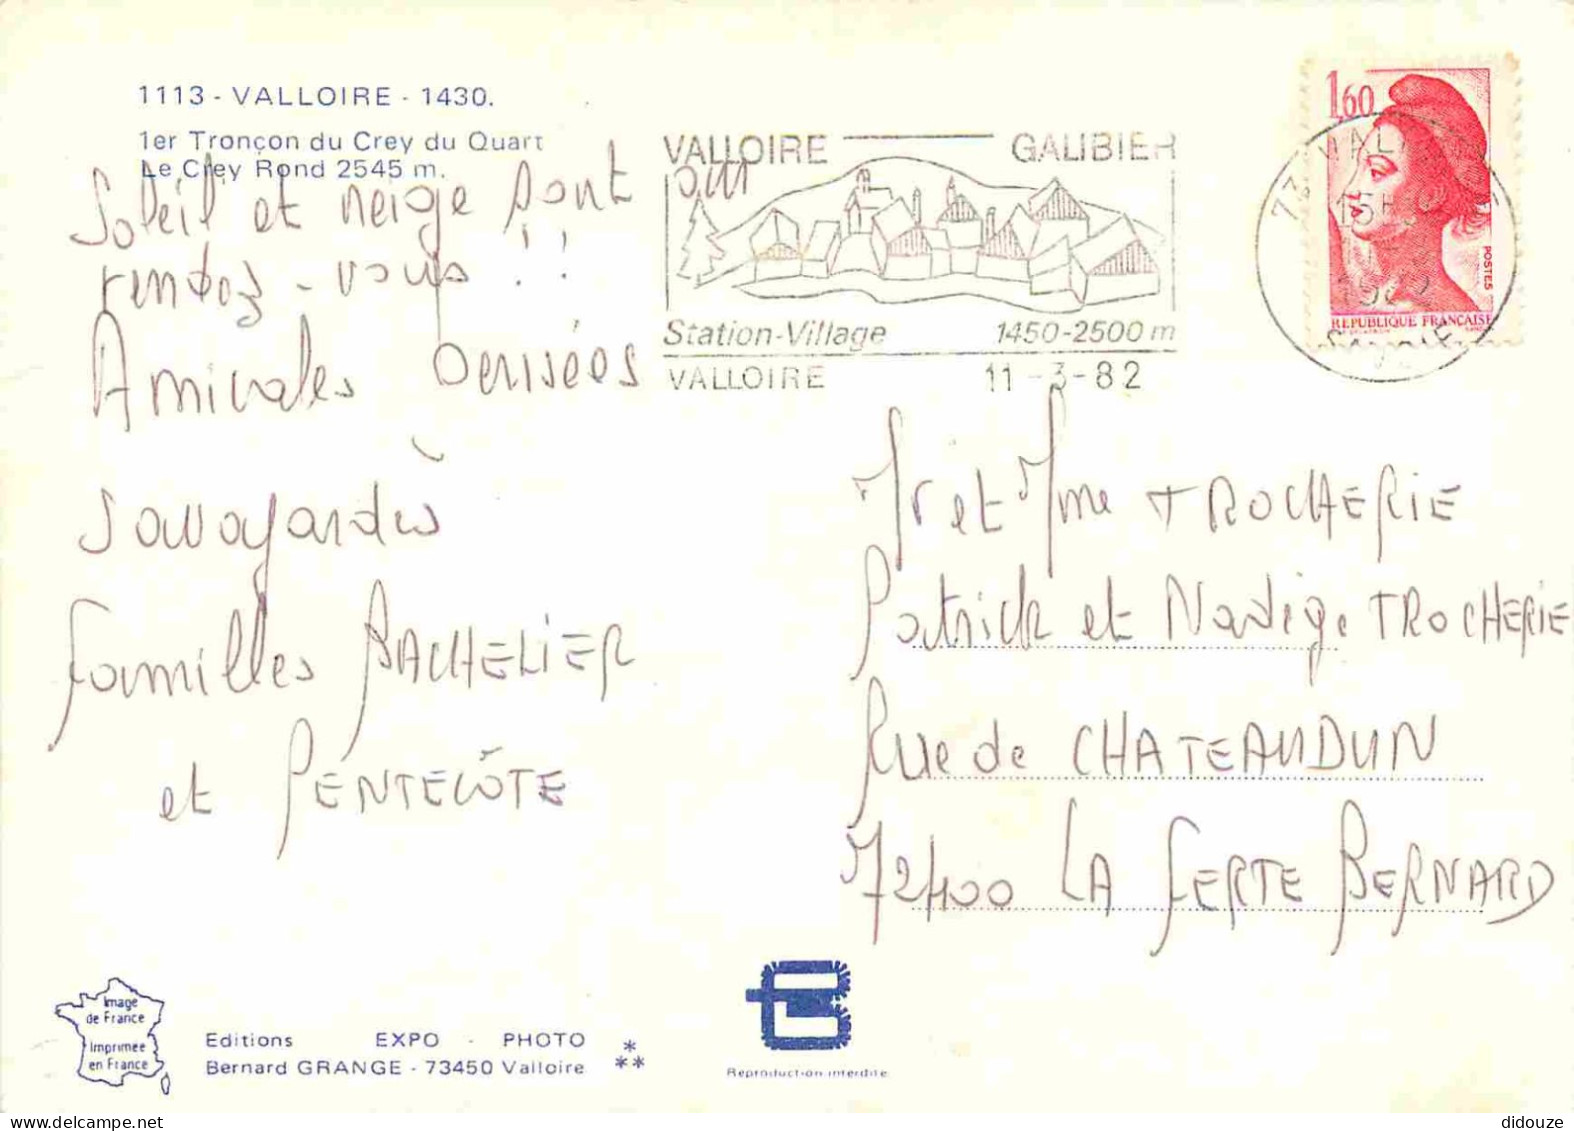 1113 - VALLOIRE - 1430.
1er Tronçon du Crey du Quart
Le Crey Rond 2545 m.
Soleil et neige sont au
rendez-vous !!
Amicales pensées
Savoyardes
Familles BACHELIER
et PENTECÔTE
VALLOIRE GALIBIER
Station-Village 1450-2500 m
VALLOIRE 11-3-82
1,60
POSTES
REPUBLIQUE FRANÇAISE
73
1982
SAVOIE
Mr et Mme TROCHERIE
Patrick et Nadège TROCHERIE
Rue de CHATEAUDUN
72400 LA FERTE BERNARD
Image
de France
Imprimée
en France
Editions EXPO - PHOTO
Bernard GRANGE - 73450 Valloire
*
**
Reproduction interdite
delcampe.net
didouze